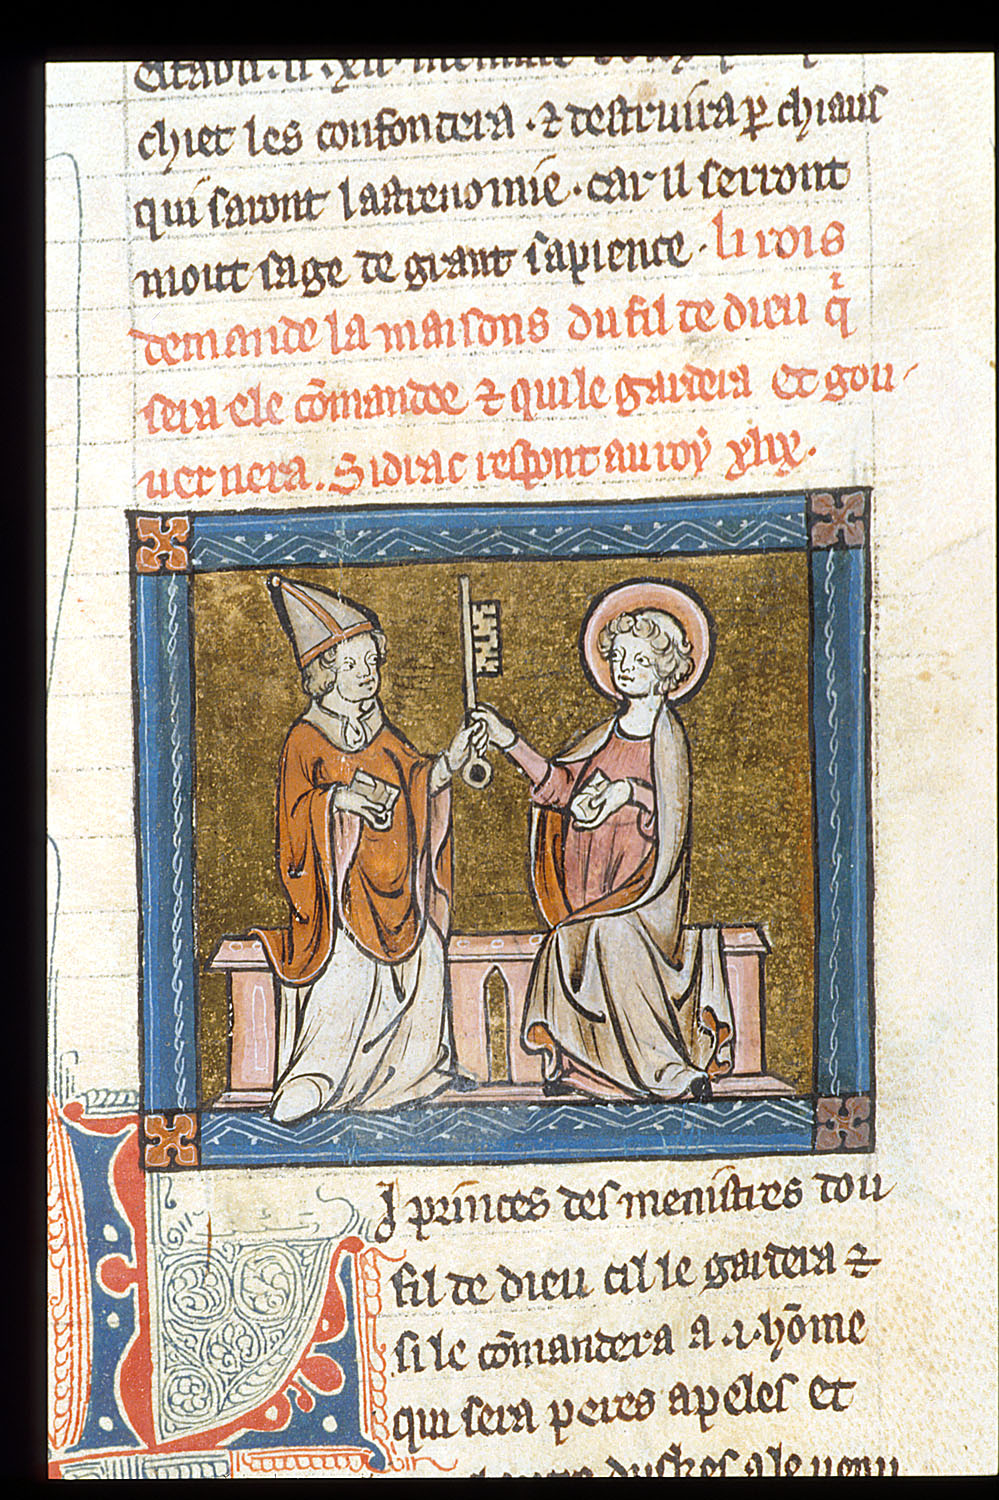 chiet les confondera · ⁊ destruira ꝑ chiaus
qui saront lastrenomie · car il serront
mout sage de grant sapience · li rois
demande la maisons du fil de dieu q̃
sera ele cōmandee ⁊ qui le gardera Et gou
uernera. Sidrac respont au roy xlix.
Li princes des menistres dou
fil de dieu cil le gardera ⁊
si le cōmandera a .i. hōme
qui sera peres apeles et